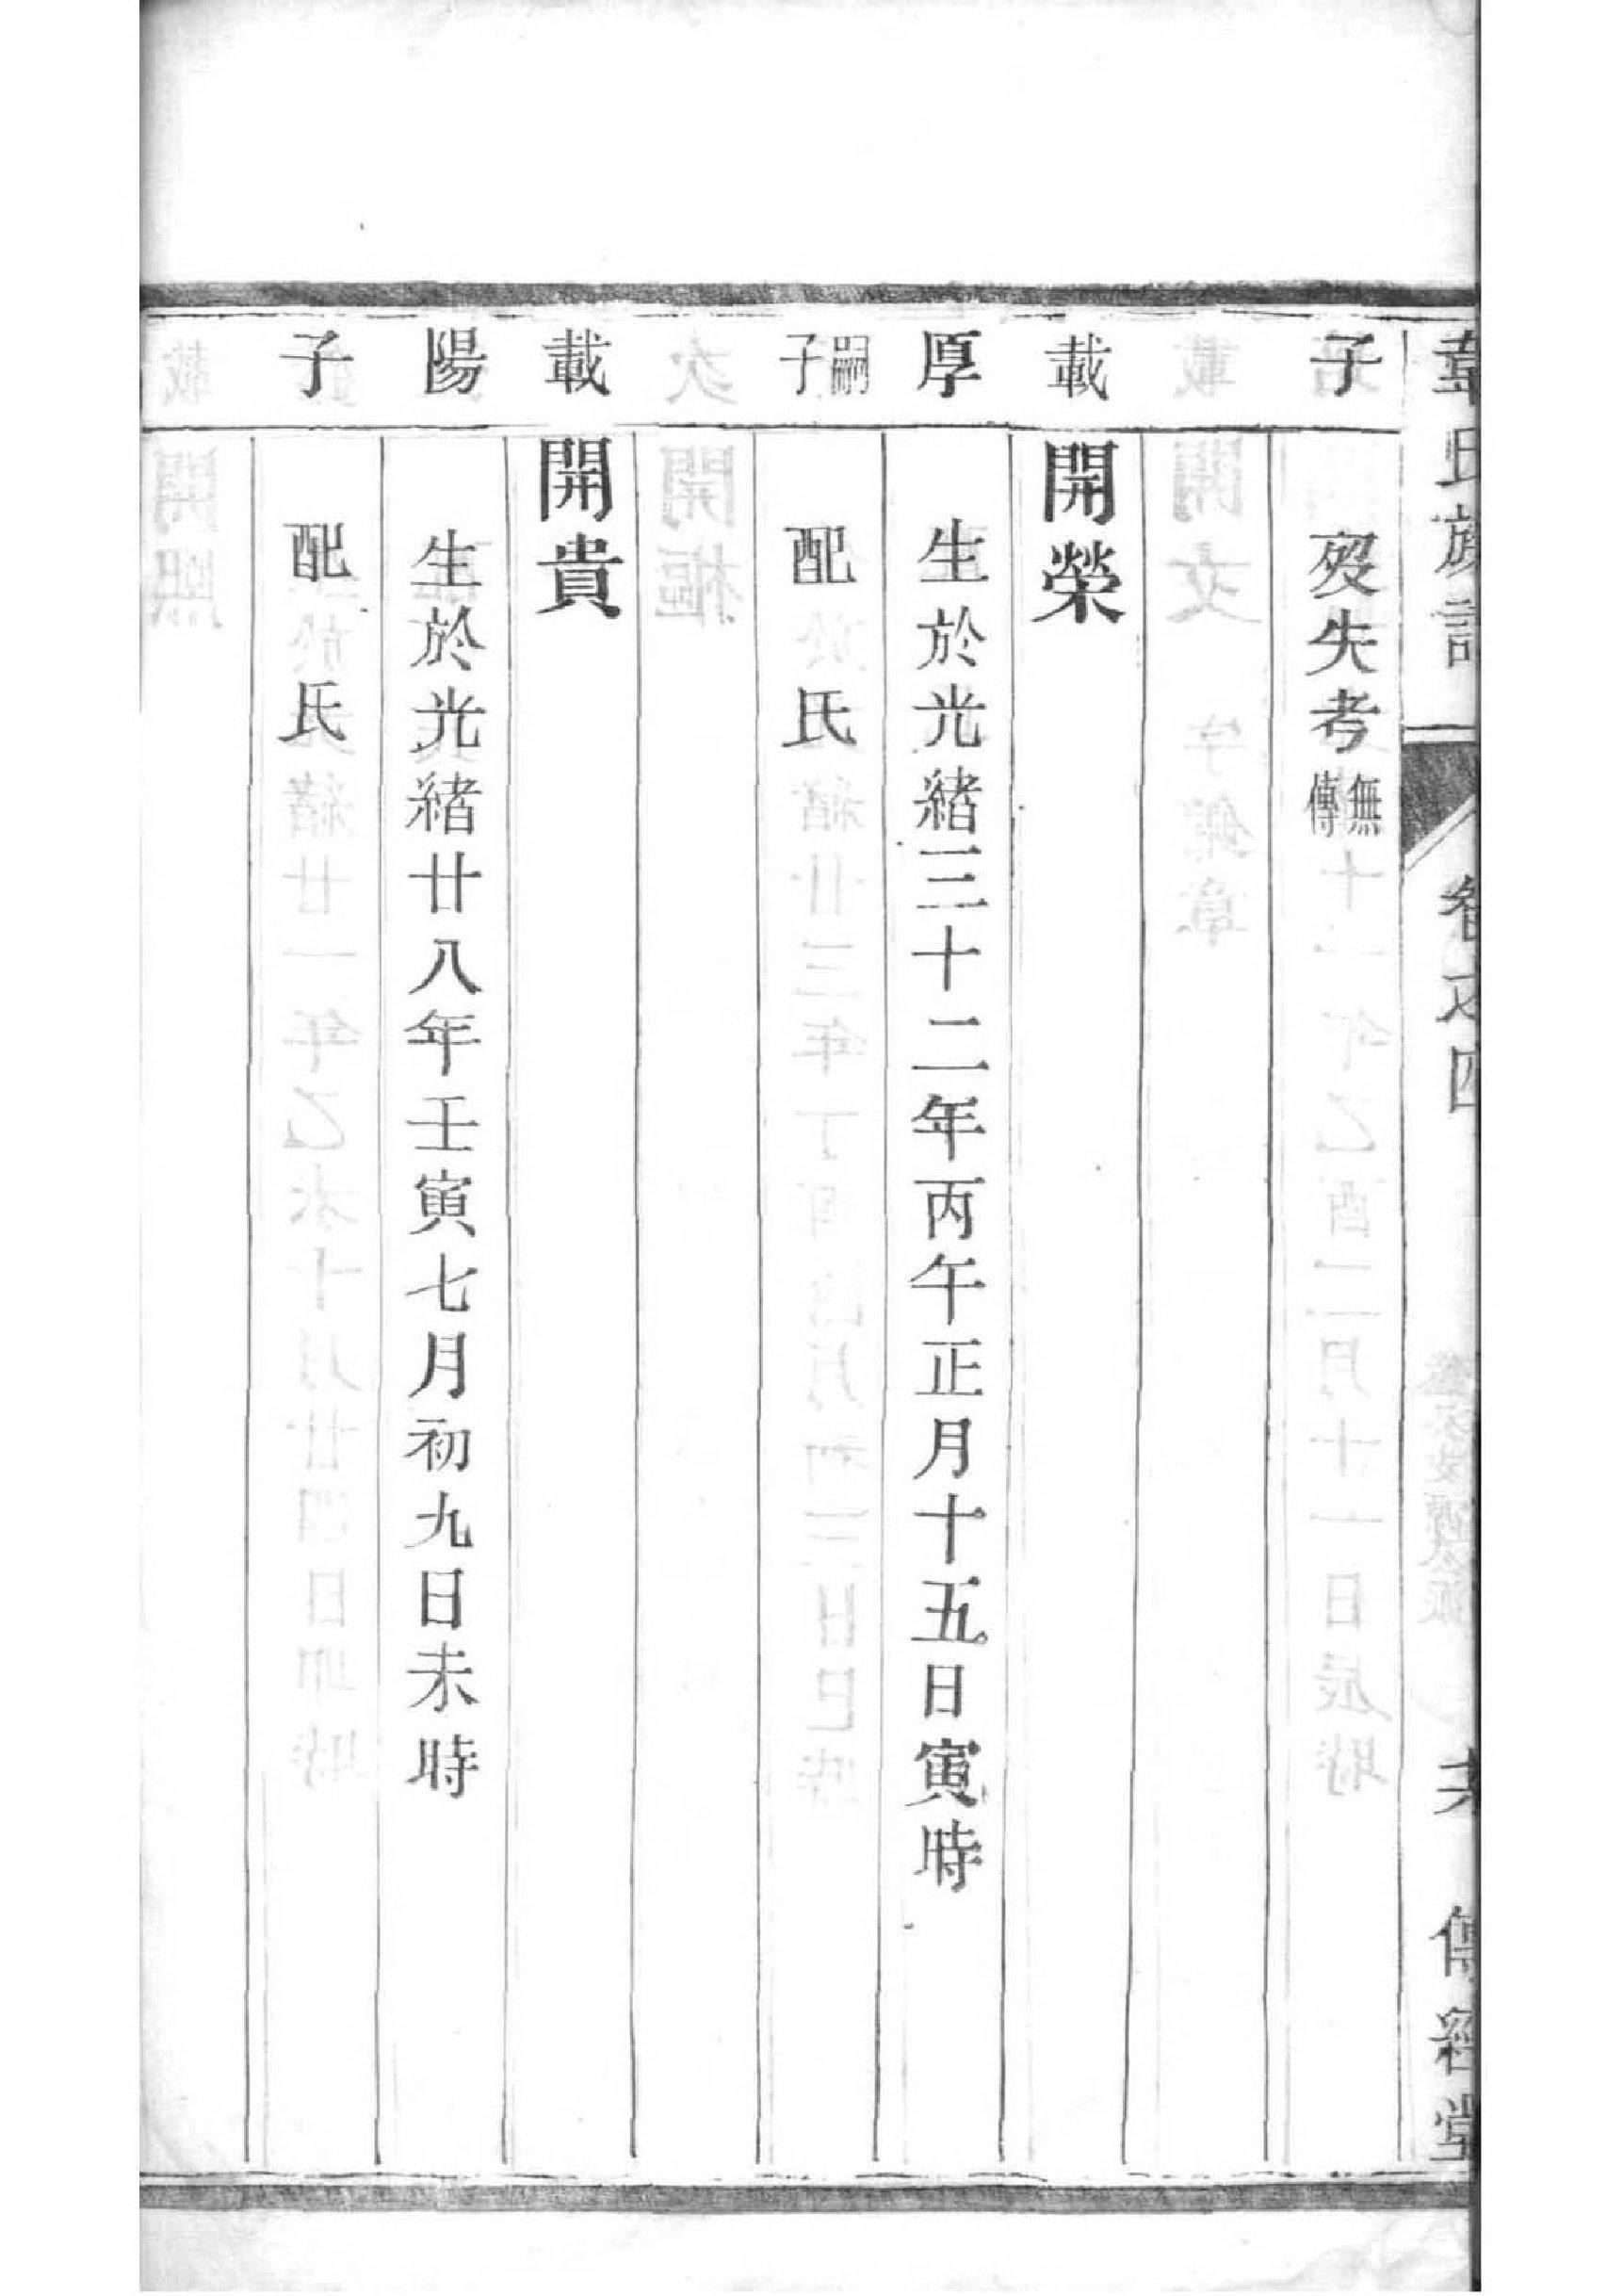 韋氏族譜 卷之四 傳經堂
子 歿失考無傳
載 開榮
厚 生於光緒三十二年丙午正月十五日寅時
嗣子 配 氏
載 開貴
陽 生於光緒廿八年壬寅七月初九日未時
子 配 氏